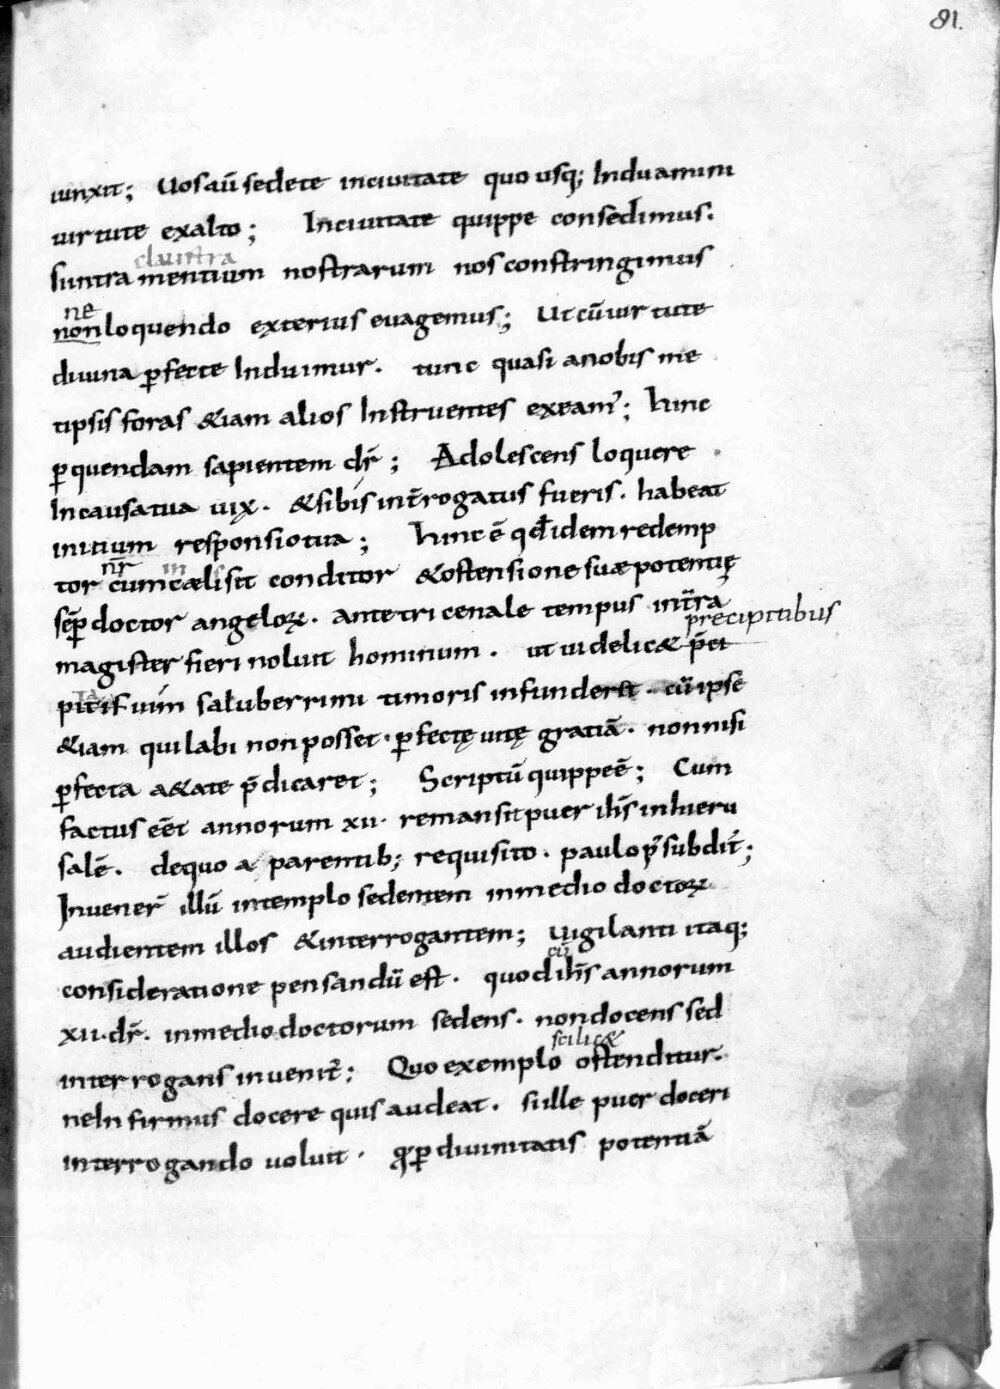 81.
iunxit; Uos aũ sedete inciuitate quo usq; Induamini
uirtute exalto; Inciuitate quippe consedimus.
claustra
si intra mentium nostrarum nos constringimus
ne
non loquendo exterius euagemus; Ut cũ uirtute
diuina p̱fecte Induimur. tunc quasi anobis me
tipsis foras &iam alios Instruentes exeam᾽; hinc
p̱ quendam sapientem dr̃; Adolescens loquere
Incausa tua uix. & si bis int̃rogatus fueris. habeat
initium responsio tua; hinc ẽ qđ idem redemp
nr̃ in
tor cum cælis sit conditor & ostensione suæ potentię
sẽp̱ doctor angeloꝝ. ante tricenale tempus int̃ra
precipitibus
magister fieri noluit hominum. ut uidelic& p̃ci
pitiť uim saluberrimi timoris infunder&. cũ ipse
&iam qui labi non posset. p̱fectę uitę gratiã. non nisi
p̱fecta a&ate p̃dicaret; Scriptũ quippe ẽ; Cum
factus eẽt annorum xii. remansit puer ih̃s in hieru
salẽ. de quo a parentib; requisito. paulo p᾽ subdit᾽;
Inuener̃ illũ intemplo sedentem inmedio doctoꝝ
audientem illos & interrogantem; Uigilanti itaq;
cũ
consideratione pensandũ est. quod ih̃s annorum
xii. dr̃. inmedio doctorum sedens. non docens sed
interrogans inuenit᾽; Quo exemplo ostenditur.
scilic&
ne Infirmus docere quis audeat. si ille puer doceri
interrogando uoluit. q̱ p̱ diuinitatis potentiã